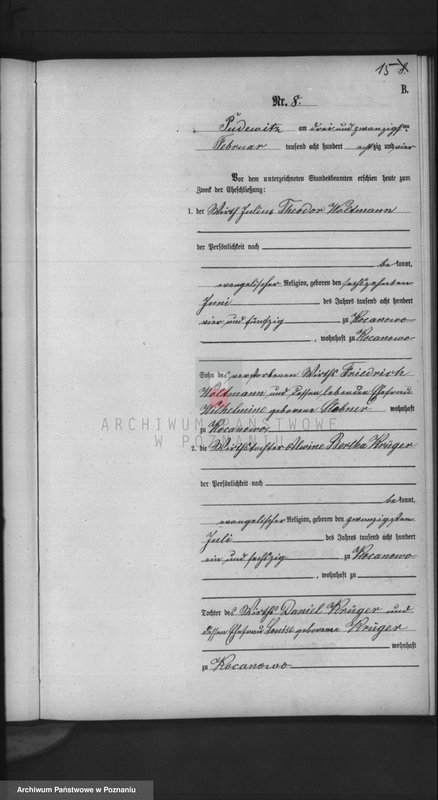 15
B.
Nr. 8.
Pudewitz am drei und zwanzigsten
Februar tausend acht hundert achtzig und vier
Vor dem unterzeichneten Standesbeamten erschien heute zum
Zweck der Eheschließung:
1. der Wirth Julius Theodor Woltmann
der Persönlichkeit nach
be kannt,
evangelischer Religion, geboren den sechszehnten
Juni des Jahres tausend acht hundert
vier und fünfzig zu Kocanowo
, wohnhaft zu Kocanowo
Sohn des verstorbenen Wirths Friedrich
Woltmann und dessen lebenden Ehefrau
Wilhelmine geborene wohnhaft
zu Kocanowo
ARCHIWUM PAŃSTWOWE
W POZNANIU
2. die Wirthstochter Alwine Bertha Krüger
der Persönlichkeit nach
be kannt,
evangelischer Religion, geboren den zwanzigsten
Juli des Jahres tausend acht hundert
ein und sechszig zu Kocanowo
, wohnhaft zu
Tochter des Wirths Daniel Krüger und
dessen Ehefrau Louise geborene Krüger
wohnhaft
zu Kocanowo
Archiwum Państwowe w Poznaniu